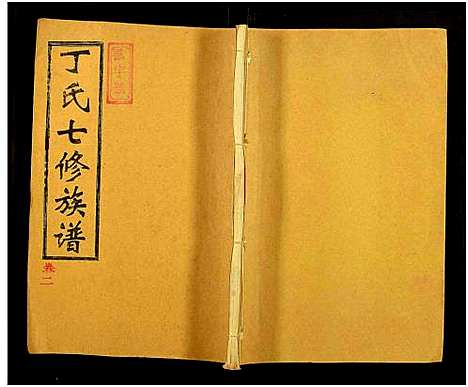 丁氏七修族谱
卷二